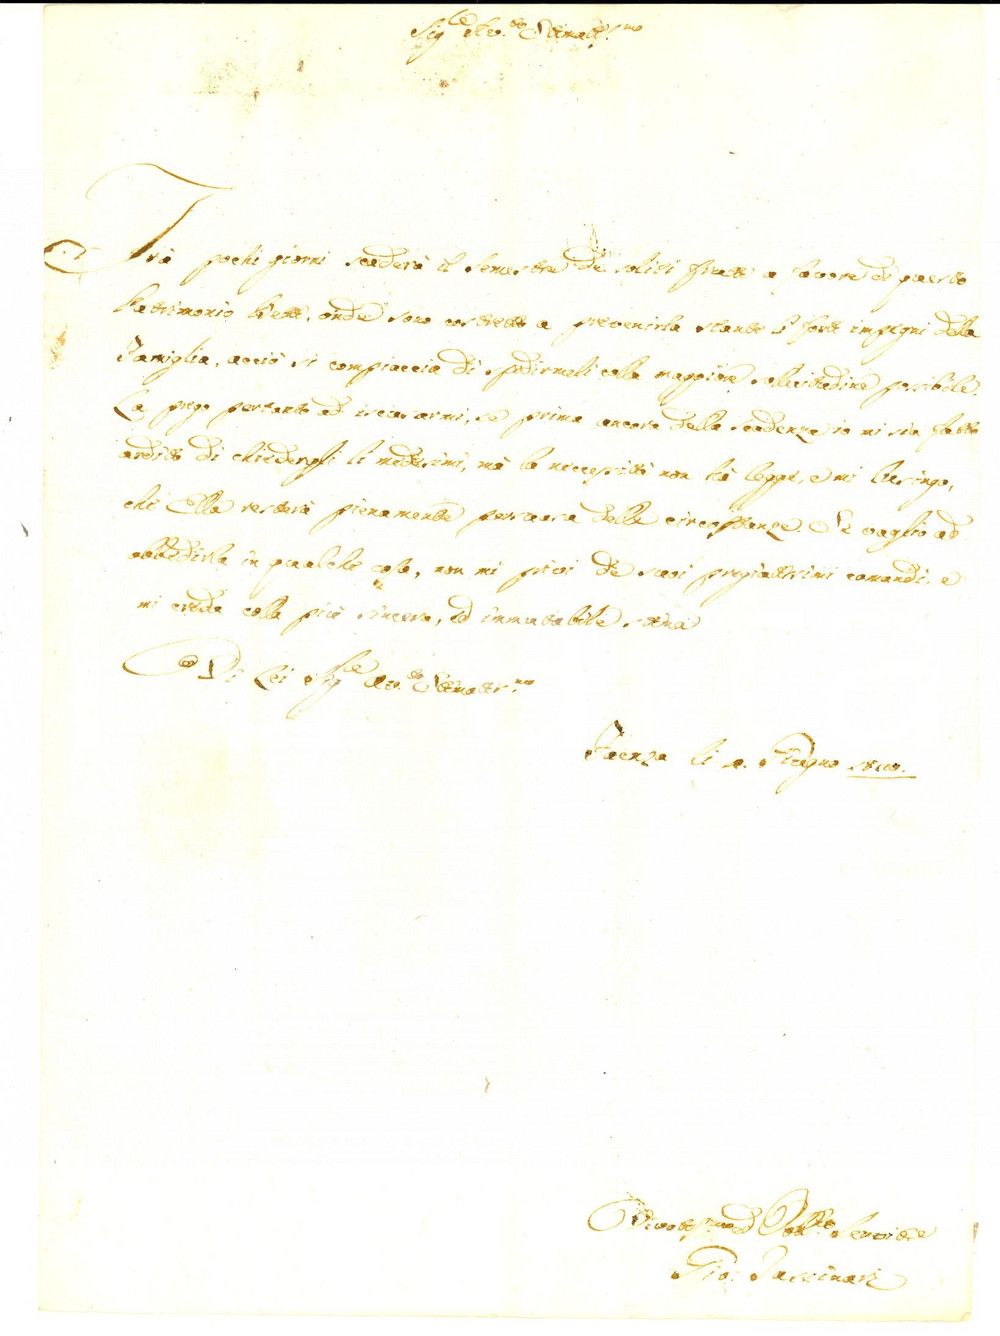 Sig.le Ab.do Stimatiss.mo
Frà pochi giorni scaderà il Semestre de' soliti frutti a favore di questo
Patrimonio Bett. onde sono costretto a prevenirla stante i forti impegni della
Famiglia, acciò si compiaccia di spedirmeli colla maggiore sollecitudine possibile.
La prego pertanto ad iscusarmi, se prima ancora della scadenza io mi sia fatto
ardito di chiedergli li medesimi, mà la necessità non hà legge, e mi lusingo,
che Ella resterà pienamente persuasa delle circostanze. Se vaglio ad
obbedirla in qualche cosa, non mi privi de suoi pregiatissimi comandi, e
mi creda colla più sincera, ed immutabile stima
Di Lei Sig.le Ab.do Stimatis.mo
Faenza li Giugno
Divotiss.mo ed Obb.mo Servitore
Gio: